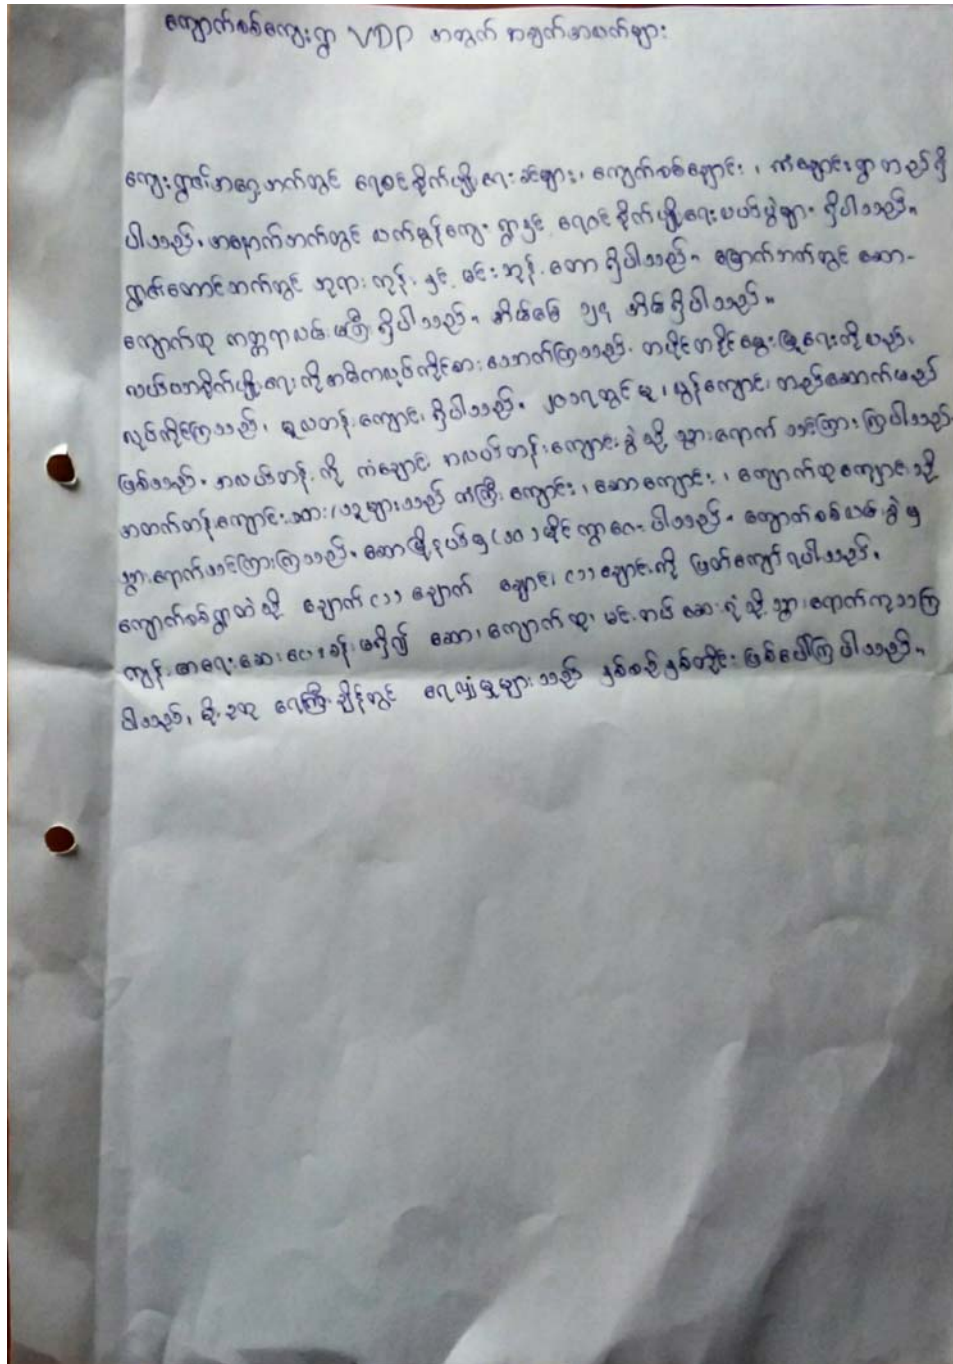 ကျောက်စစ်ကျေးရွာ VDP အတွက် အချက်အလက်များ
ကျေးရွာ၏အရှေ့ဘက်တွင် ရေဝင်စိုက်ပျိုးရေးခင်းများ၊ ကျောက်စစ်ချောင်း၊ ကံချောင်းရွာတည်ရှိ
ပါသည်။ အနောက်ဘက်တွင် လက်ခွန်ကျေးရွာနှင့် ရေဝင်စိုက်ပျိုးရေးလယ်ကွဲများ ရှိပါသည်။
ရွာ၏တောင်ဘက်တွင် ဘုရားကုန်းနှင့် မင်းဘုန်းတော ရှိပါသည်။ မြောက်ဘက်တွင် ဆော-
ကျောက်ထု ကတ္တရာလမ်းမကြီး ရှိပါသည်။ အိမ်ခြေ ၁၂၄ အိမ်ရှိပါသည်။
လယ်ယာစိုက်ပျိုးရေးကို အဓိကလုပ်ကိုင်စားသောက်ကြသည်။ တပိုင်တနိုင်မွေးမြူရေးကိုလည်း
လုပ်ကိုင်ကြသည်၊ မူလတန်းကျောင်း ရှိပါသည်။ ၂၀၁၇တွင် မူ၊လွန်ကျောင်း တည်ဆောက်မည်
ဖြစ်သည်။ အလယ်တန်းကို ကံချောင်း အလယ်တန်းကျောင်းခွဲသို့ သွားရောက် သင်ကြားကြပါသည်
အထက်တန်းကျောင်းသား/သူများသည် ကံကြီးကျောင်း၊ ဆောကျောင်း၊ ကျောက်ထုကျောင်းသို့
သွားရောက်သင်ကြားကြသည်။ ဆောမြို့နယ်မှ (၁၀) မိုင်ကွာဝေးပါသည်။ ကျောက်စစ်လမ်းခွဲမှ
ကျောက်စစ်ရွာထဲသို့ ချောက် (၁) ချောက် ချောင်း (၁) ချောင်းကို ဖြတ်ကျော်ရပါသည်။
ကျန်းမာရေးဆေးပေးခန်းမရှိ၍ ဆော၊ ကျောက်ထု၊ မင်းတပ် ဆေးရုံသို့ သွားရောက်ကုသကြ
ပါသည်၊ မိုးဥတု ရေကြီးချိန်တွင် ရေလျှံမှုများသည် နှစ်စဉ်နှစ်တိုင်း ဖြစ်ပေါ်ကြပါသည်။